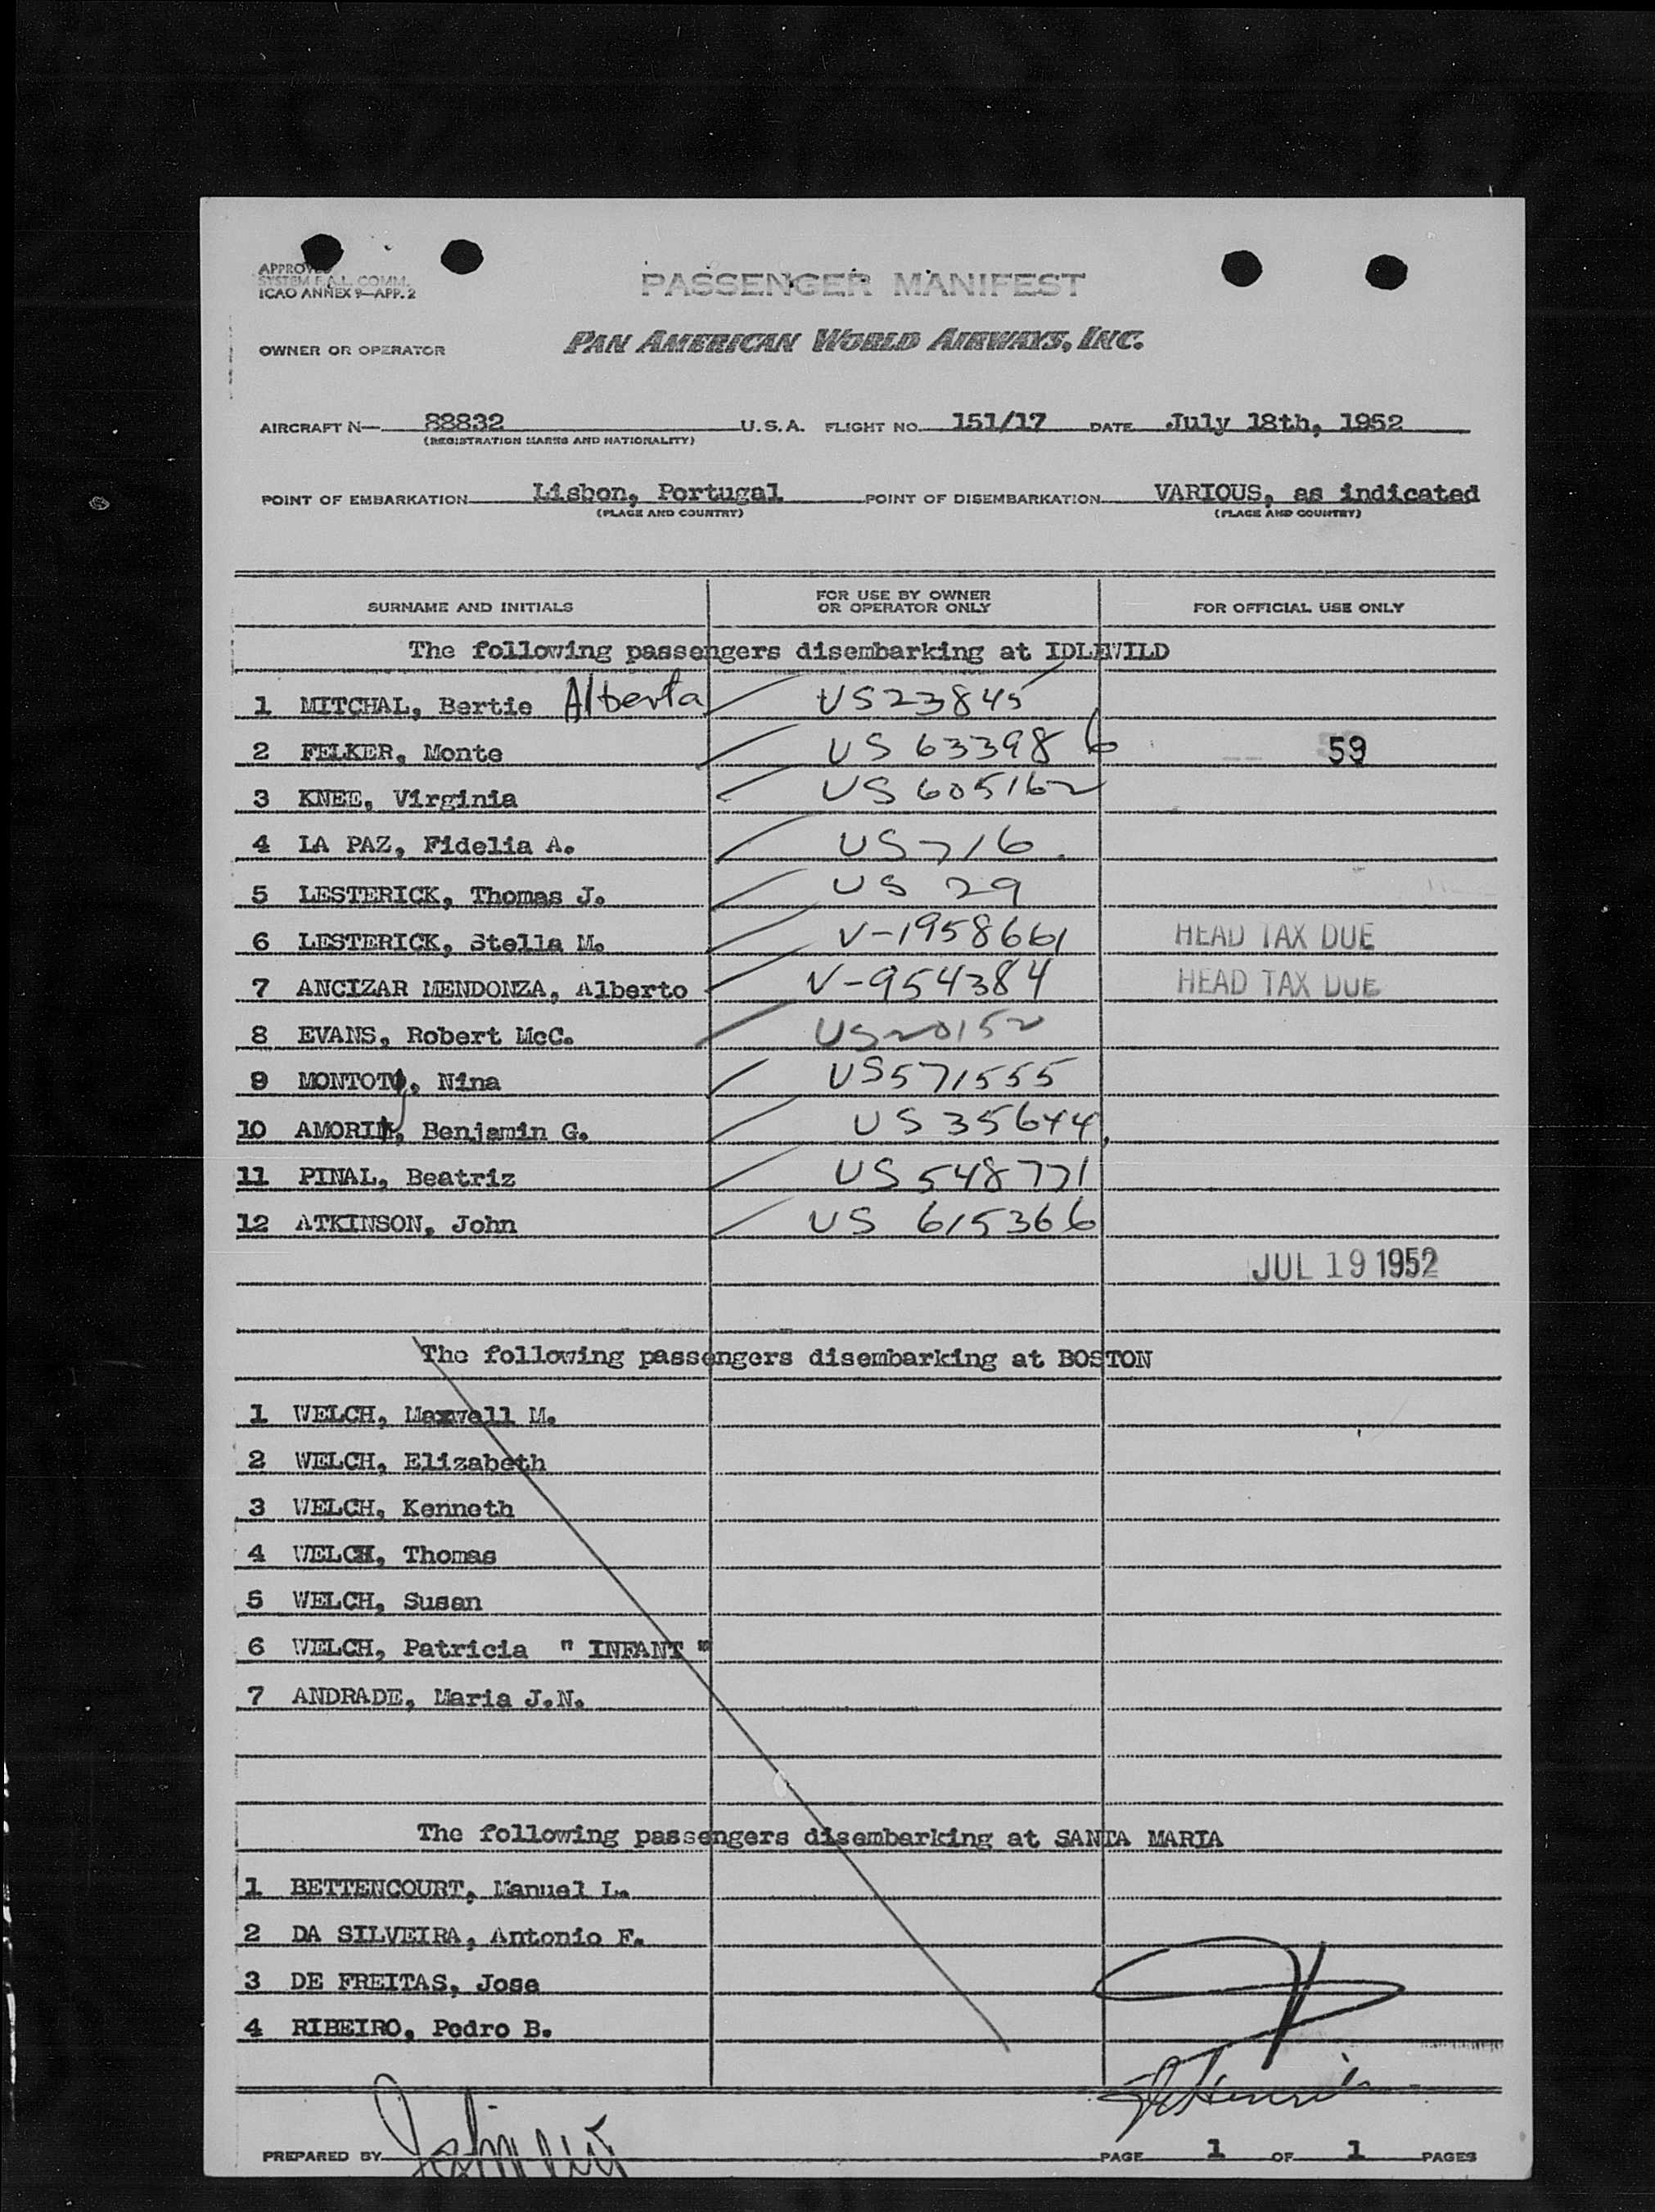 APPROVED
SYSTEM F.A.L. COMM.
ICAO ANNEX 9—APP. 2
PASSENGER MANIFEST
OWNER OR OPERATOR PAN AMERICAN WORLD AIRWAYS, INC.
AIRCRAFT N— 88832 U.S.A. FLIGHT NO. 151/17 DATE July 18th, 1952
(REGISTRATION MARKS AND NATIONALITY)
POINT OF EMBARKATION Lisbon, Portugal POINT OF DISEMBARKATION VARIOUS, as indicated
(PLACE AND COUNTRY) (PLACE AND COUNTRY)
SURNAME AND INITIALS FOR USE BY OWNER OR OPERATOR ONLY FOR OFFICIAL USE ONLY
The following passengers disembarking at IDLEWILD
1 MITCHAL, Bertie Alberta US23845
2 FELKER, Monte US 633986 59
3 KNEE, Virginia US 605162
4 LA PAZ, Fidelia A. US 716
5 LESTERICK, Thomas J. US 29
6 LESTERICK, Stella M. V-1958661 HEAD TAX DUE
7 ANCIZAR MENDONZA, Alberto V-954384 HEAD TAX DUE
8 EVANS, Robert McC. US20152
9 MONTOTO, Nina US571555
10 AMORIM, Benjamin G. US 35644
11 PINAL, Beatriz US 548771
12 ATKINSON, John US 615366
JUL 19 1952
The following passengers disembarking at BOSTON
1 WELCH, Maxwell M.
2 WELCH, Elizabeth
3 WELCH, Kenneth
4 WELCH, Thomas
5 WELCH, Susan
6 WELCH, Patricia " INFANT "
7 ANDRADE, Maria J.N.
The following passengers disembarking at SANTA MARIA
1 BETTENCOURT, Manuel L.
2 DA SILVEIRA, Antonio F.
3 DE FREITAS, Jose
4 RIBEIRO, Pedro B.
PREPARED BY PAGE 1 OF 1 PAGES